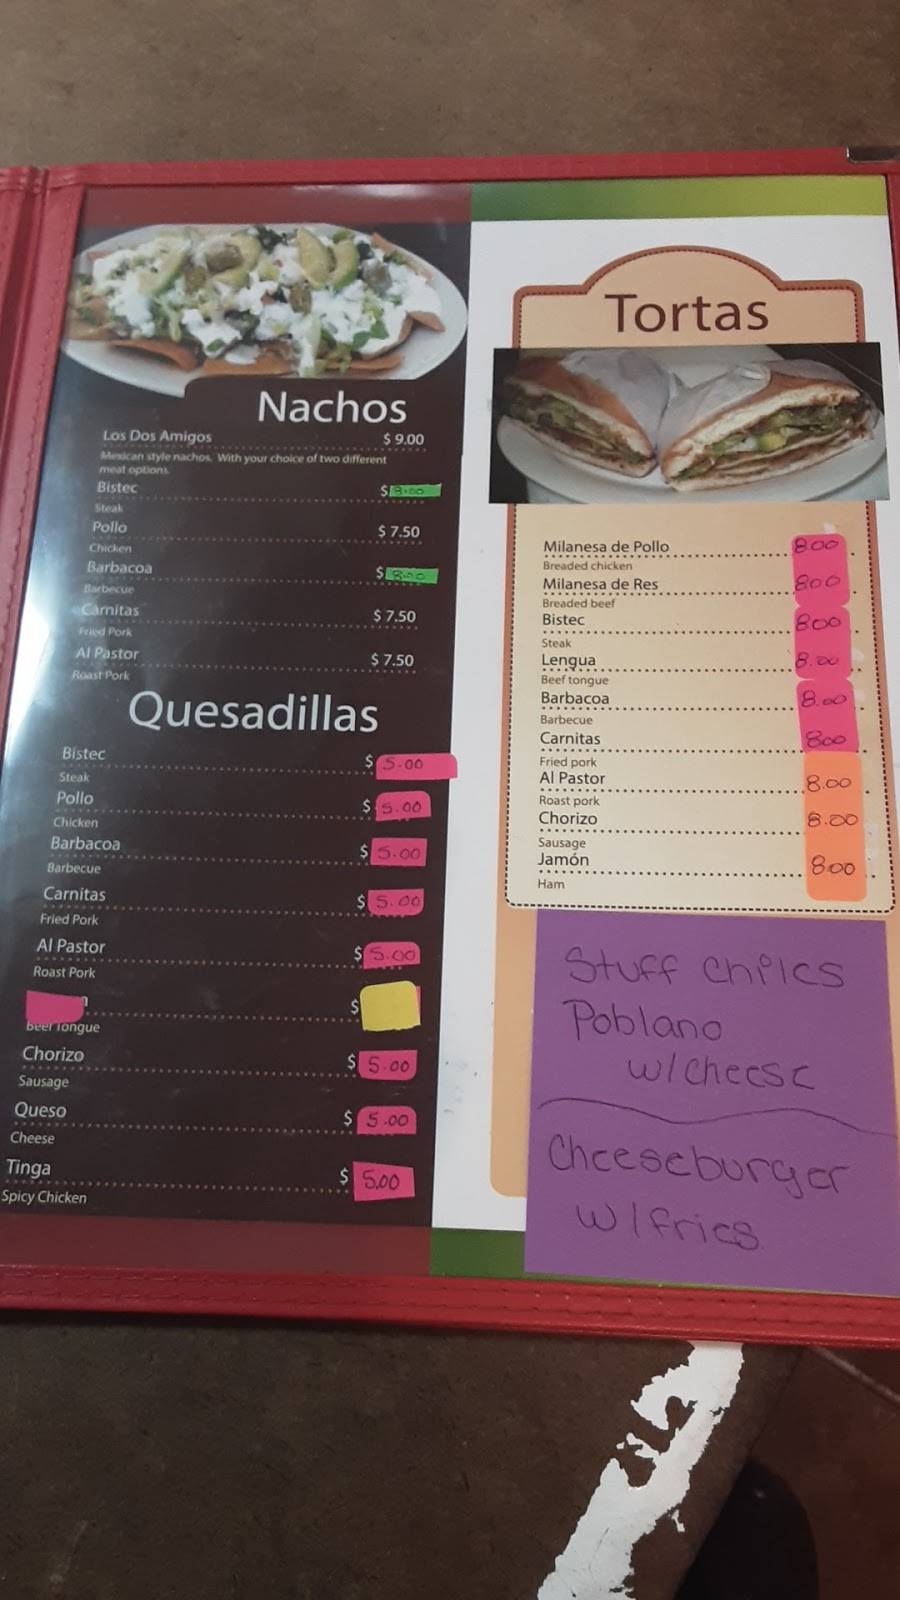 Nachos
Los Dos Amigos $ 9.00
Mexican style nachos. With your choice of two different
meat options.
Bistec $ 8.00
Steak
Pollo $ 7.50
Chicken
Barbacoa $ 8.00
Barbecue
Carnitas $ 7.50
Fried Pork
Al Pastor $ 7.50
Roast Pork
Quesadillas
Bistec $ 5.00
Steak
Pollo $ 5.00
Chicken
Barbacoa $ 5.00
Barbecue
Carnitas $ 5.00
Fried Pork
Al Pastor $ 5.00
Roast Pork
$
Beef Tongue
Chorizo $ 5.00
Sausage
Queso $ 5.00
Cheese
Tinga $ 5.00
Spicy Chicken
Tortas
Milanesa de Pollo 8.00
Breaded chicken
Milanesa de Res 8.00
Breaded beef
Bistec 8.00
Steak
Lengua 8.00
Beef tongue
Barbacoa 8.00
Barbecue
Carnitas 8.00
Fried pork
Al Pastor 8.00
Roast pork
Chorizo 8.00
Sausage
Jamón 8.00
Ham
Stuff
Poblano
w/cheese
Cheeseburger
w/fries